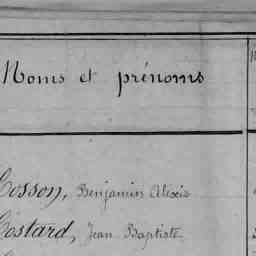 Noms et prénoms
Cosson, Benjamin Alexis
Costard, Jean Baptiste